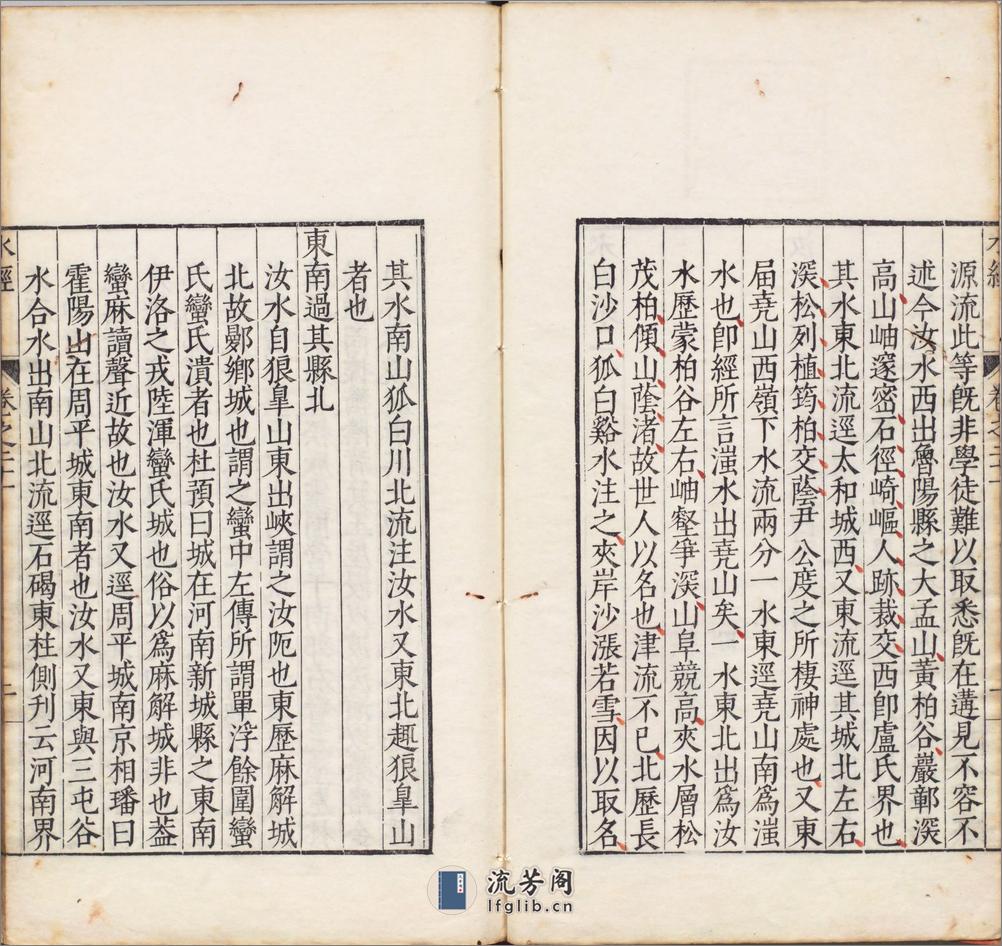 源流此等旣非學徒難以取悉旣在遘見不容不
述今汝水西出魯陽縣之大孟山黃柏谷巖鄣深
高山岫邃密石徑崎嶇人跡裁交西卽盧氏界也
其水東北流逕太和城西又東流逕其城北左右
深松列植筠柏交蔭尹公度之所棲神處也又東
屆堯山西嶺下水流兩分一水東逕堯山南爲滍
水也卽經所言滍水出堯山矣一水東北出爲汝
水歷蒙柏谷左右岫壑爭深山阜競高夾水層松
茂柏傾山蔭渚故世人以名也津流不已北歷長
白沙口狐白谿水注之夾岸沙漲若雪因以取名
水經
卷之二十一
其水南山狐白川北流注汝水又東北趣狼皐山
者也
東南過其縣北
汝水自狼皐山東出峽謂之汝阨也東歷麻解城
北故鄤鄉城也謂之蠻中左傳所謂單浮餘圍蠻
氏蠻氏潰者也杜預曰城在河南新城縣之東南
伊洛之戎陸渾蠻氏城也俗以爲麻解城非也葢
蠻麻讀聲近故也汝水又逕周平城南京相璠曰
霍陽山在周平城東南者也汝水又東與三屯谷
水合水出南山北流逕石碣東柱側刋云河南界
水經
卷之二十一
流芳阁
lfglib.cn